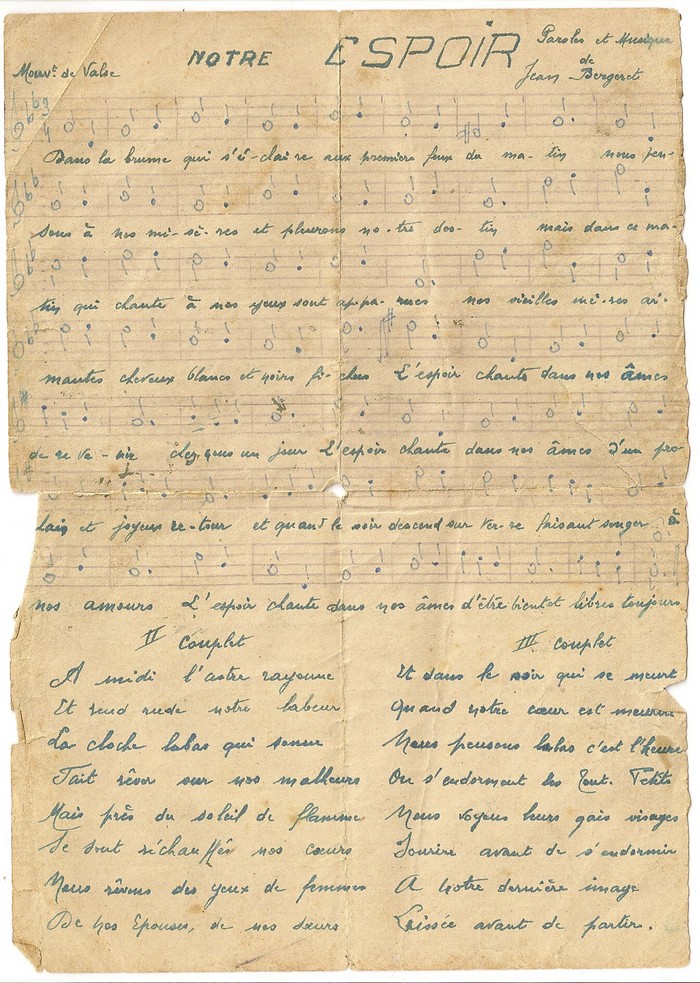 NOTRE ESPOIR
Paroles et Musique
de
Jean Bergeret
Mouvt. de Valse
Dans la brume qui s'é-clai re aux premiers feux du ma-tin nous pen-
sons à nos mi-sè-res et pleurons no-tre des-tin mais dans ce ma-
tin qui chante à nos yeux sont ap-pa-rues nos vieilles mè-res ai-
mantes cheveux blancs et noirs fi-chus L'espoir chante dans nos âmes
de re ve-nir chez nous un jour L'espoir chante dans nos âmes d'un pro-
chain et joyeux re-tour et quand le soir descend sur ter-re faisant songer à
nos amours L'espoir chante dans nos âmes d'être bientot libres toujours
II couplet
A midi l'astre rayonne
Et rend rude notre labeur
La cloche labas qui sonne
Fait rêver sur nos malheurs
Mais près du soleil de flamme
Se sont réchauffés nos cœurs
Nous rêvons des yeux de femmes
De nos Epouses, de nos sœurs
III couplet
Et dans le soir qui se meurt
Quand notre cœur est meurtri
Nous pensons labas c'est l'heure
Ou s'endorment les Tout. Petits
Nous voyons leurs gais visages
Sourire avant de s'endormir
A notre dernière image
Laissée avant de partir.